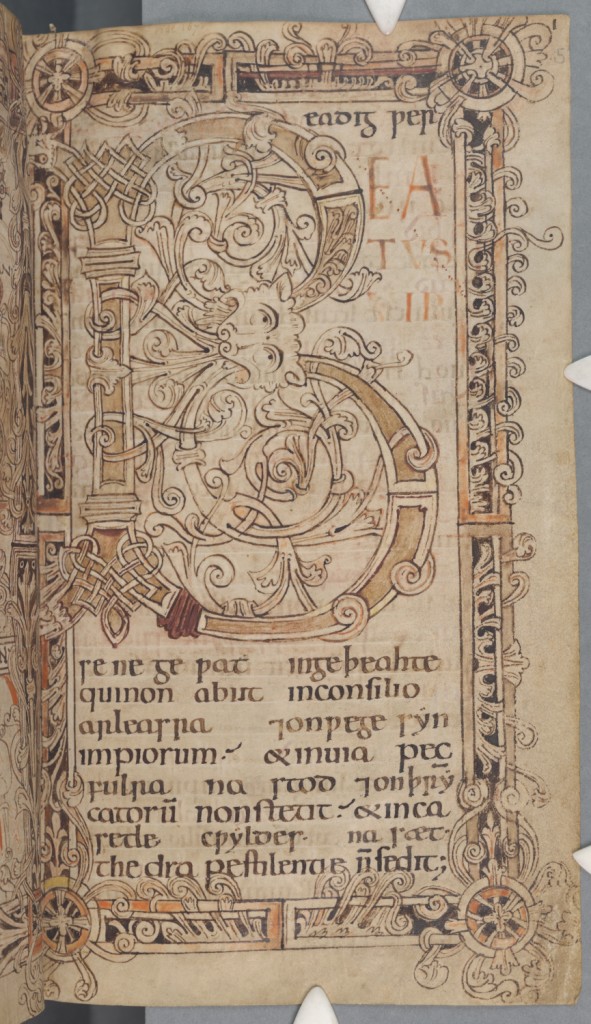 eadig wer
EA
TVS
VIR
se ne ge wat ingeþeahte
qui non abiit in consilio
arleasra ⁊on wege syn
impiorum. & in uia pec
fulra na stod ⁊on þrym̄
catorū non stetit. & in ca
setle cwyldes na sæt
thedra pestilentie n̄ sedit;